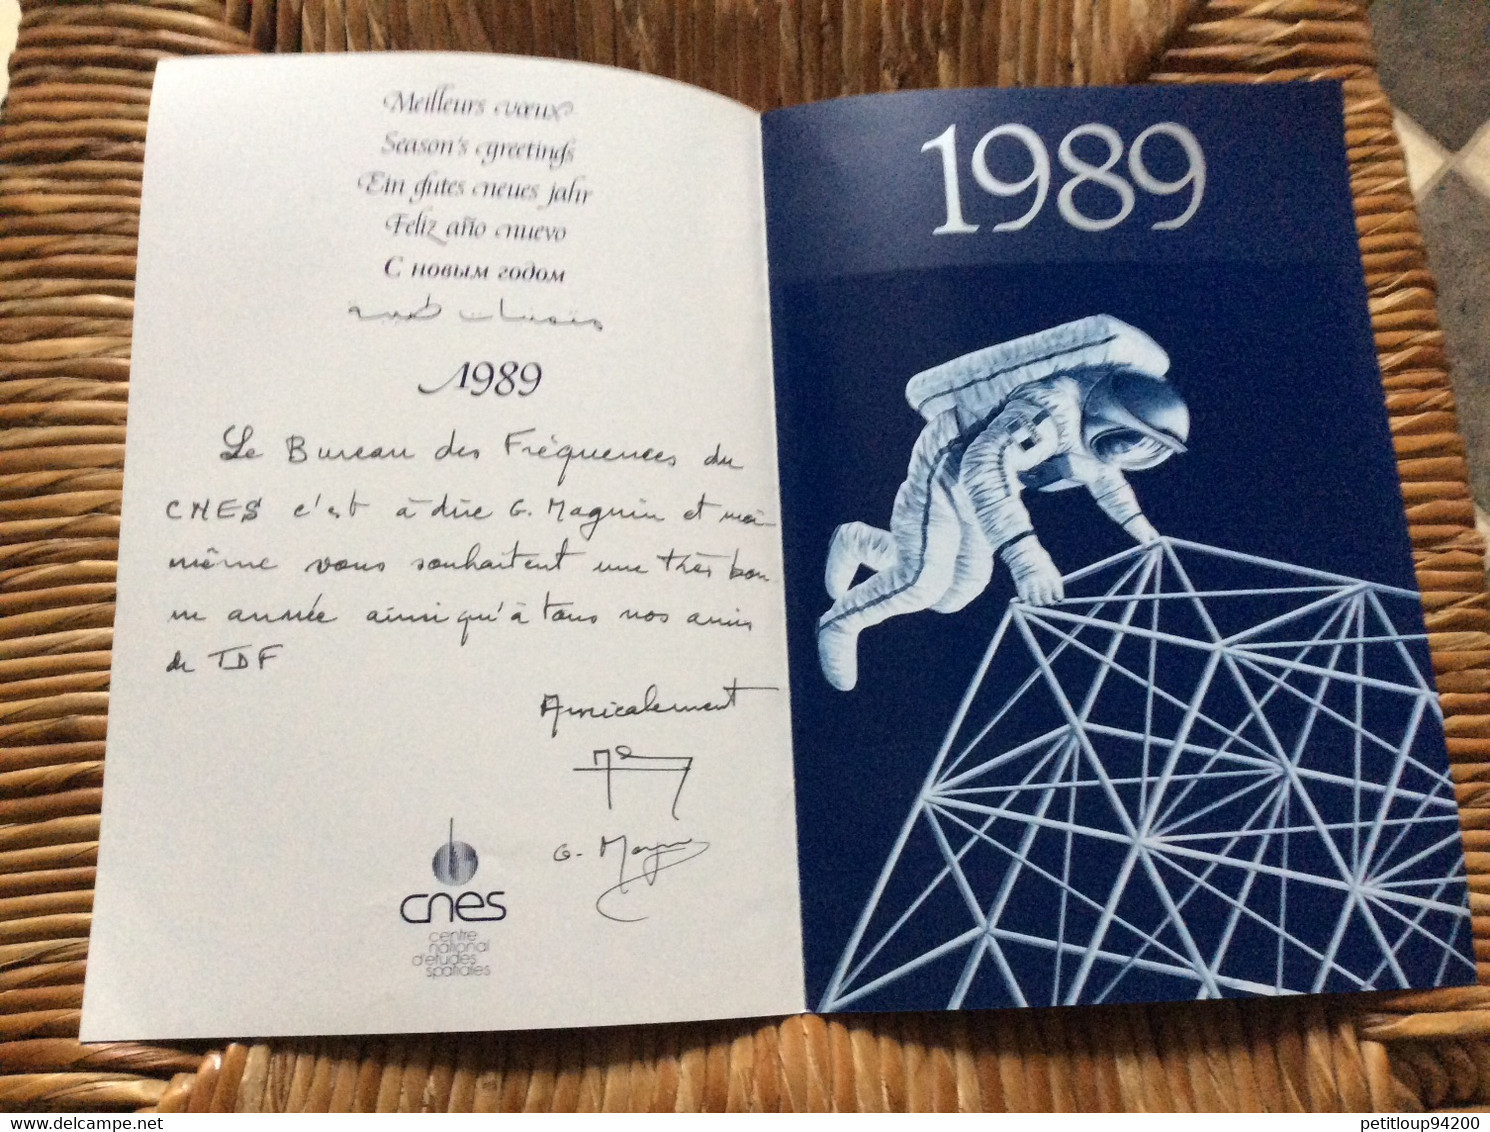 Meilleurs vœux
Season's greetings
Ein gutes neues jahr
Feliz año nuevo
С новым годом
1989
Le Bureau des Fréquences du
CNES c'est à dire G. Magnin et moi
même vous souhaitent une très bon
ne année ainsi qu'à tous nos amis
de TDF
Amicalement
G. Magnin
cnes
centre
national
d'études
spatiales
1989
www.delcampe.net
petitloup94200